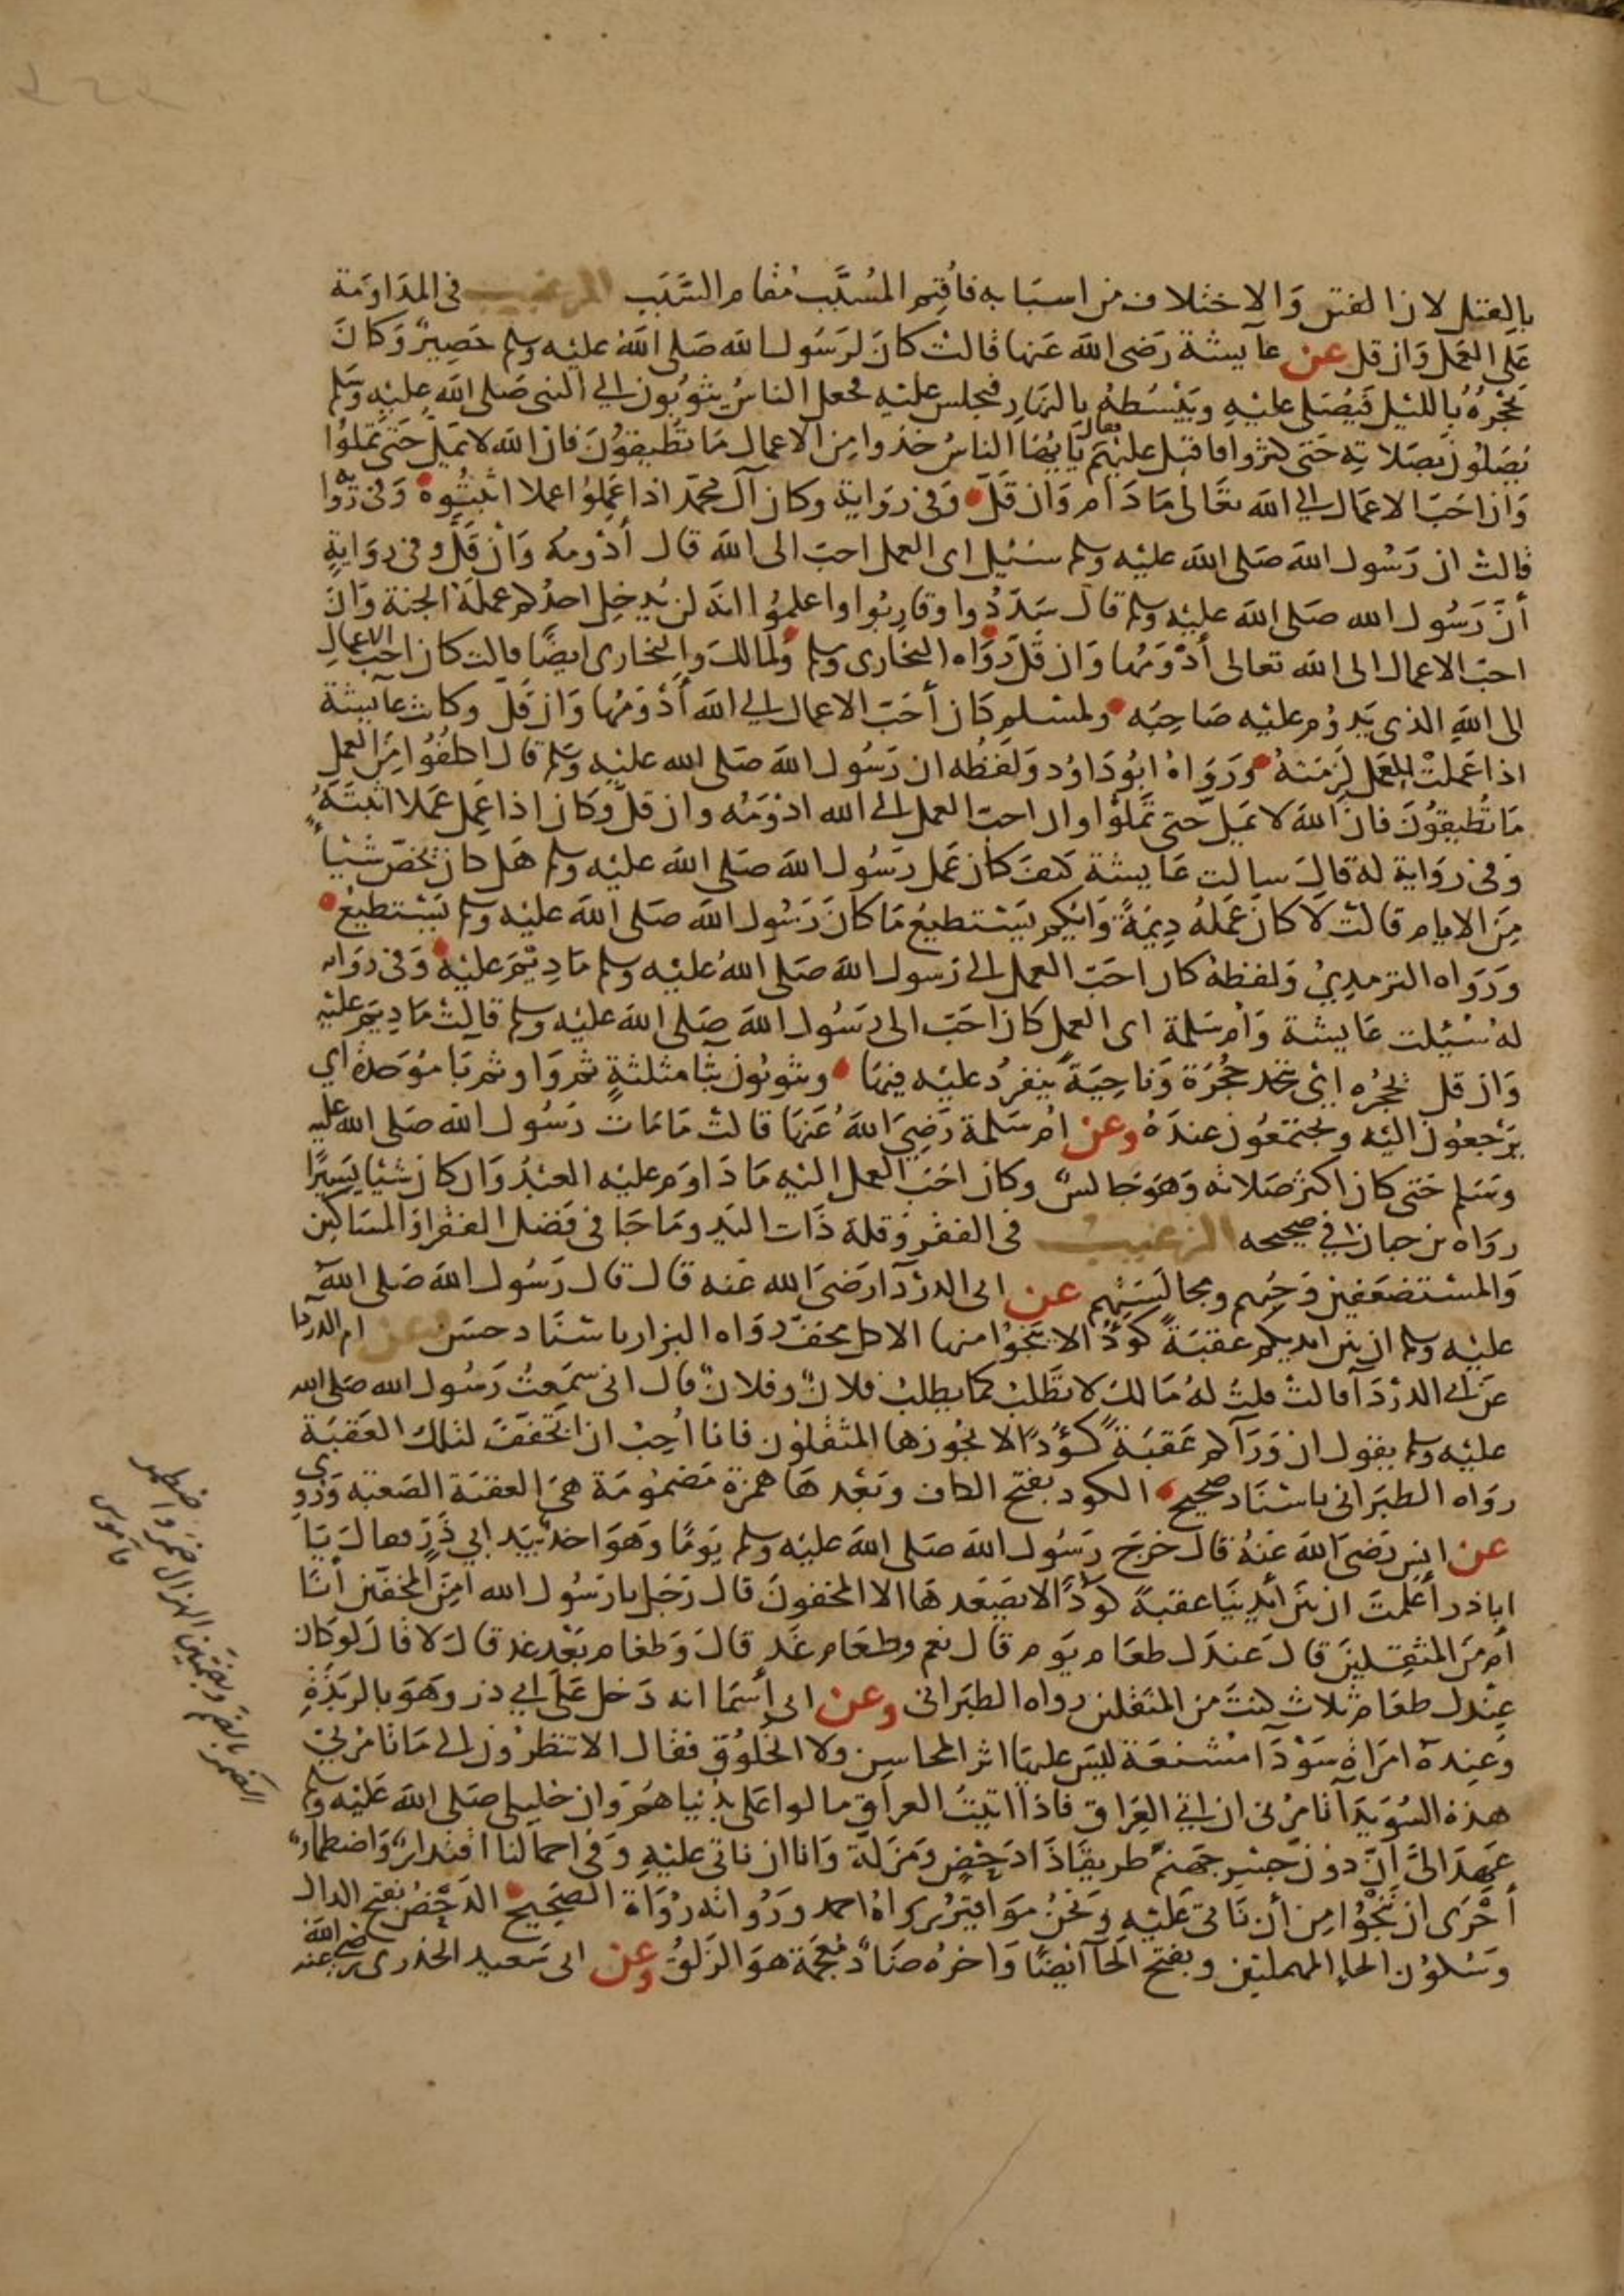 بالقتل لان الفتن والاختلاف من اسبابه فاقيم المسبب مقام السبب الترغيب في المداومة
على العمل وان قل عن عايشة رضى الله عنها قالت كان لرسول الله صلى الله عليه وسلم حصير وكان
يحجره بالليل فيصلى عليه ويبسطه بالنهار فيجلس عليه فجعل الناس يثوبون الي النبى صلى الله عليه وسلم
يصلون بصلاته حتى كثروا فاقبل عليهم فقال يا ايها الناس خذوا من الاعمال ما تطيقون فان الله لا يمل حتى تملوا
وان احب الاعمال الي الله تعالى ما دام وان قل وفى رواية وكان آل محمد اذا عملوا عملا اثبتوه وفى رواية
قالت ان رسول الله صلى الله عليه وسلم سئيل اى العمل احب الى الله قال أدومه وان قل وفى رواية
أن رسول الله صلى الله عليه وسلم قال سددوا وقاربوا واعلموا انه لن يدخل احدكم عمله الجنة وان
احب الاعمال الى الله تعالى أدومها وان قل رواه البخارى وسلم ولمالك والبخارى ايضا قالت كان احب الاعمال
الى الله الذى يدوم عليه صاحبه ولمسلم كان أحب الاعمال الي الله أدومها وان قل وكانت عايشة
اذا عملت العمل لزمته ورواه ابو داود ولفظه ان رسول الله صلى الله عليه وسلم قال اكلفوا من العمل
ما تطيقون فان الله لا يمل حتى تملوا وان احب العمل الي الله ادومه وان قل وكان اذا عمل عملا اثبته
وفى رواية له قال سالت عايشة كيف كان عمل رسول الله صلى الله عليه وسلم هل كان يخص شيئا
من الايام قالت لا كان عمله ديمة وايكم يستطيع ما كان رسول الله صلى الله عليه وسلم يستطيع
ورواه الترمذي ولفظه كان احب العمل الى رسول الله صلى الله عليه وسلم ما ديم عليه وفى رواية
له سئيلت عايشة وام سلمة اى العمل كان احب الى رسول الله صلى الله عليه وسلم قالت ما ديم عليه
وان قل يحجره اي يتخذ حجرة وناحية ينفرد عليه فيها ويثوبون بثا مثلثة ثم واو ثم با موحدة اي
يرجعون اليه ويجتمعون عنده وعن ام سلمة رضي الله عنها قالت ما مات رسول الله صلى الله عليه
وسلم حتى كان اكثر صلاته وهو جالس وكان احب العمل اليه ما داوم عليه العبد وان كان شيئا يسيرا
رواه بن حبان في صحيحه الترغيب فى الفقر وقلة ذات اليد وما جا فى فضل الفقرا والمساكين
والمستضعفين وحبهم ومجالستهم عن ابى الدردآ رضى الله عنه قال قال رسول الله صلى الله
عليه وسلم ان بين ايديكم عقبة كؤدا لا ينجوا منها الا كل مخف رواه البزار باسناد حسن وعن ام الدردا
عن ابي الدردآ قالت قلت له مالك لا تطلب كما يطلب فلان وفلان قال انى سمعت رسول الله صلى الله
عليه وسلم يقول ان ورآكم عقبة كؤدا لا يجوزها المثقلون فانا احب ان اتخفف لتلك العقبة
رواه الطبرانى باسناد صحيح الكود بفتح الكاف وبعدها همزة مضمومة هى العقبة الصعبة وروى
عن انس رضى الله عنه قال خرج رسول الله صلى الله عليه وسلم يوما وهو اخذ بيد ابي ذر فقال يا
اباذر أعلمت ان بين أيدينا عقبة كؤدا لا يصعدها الا المخفون قال رجل يا رسول الله امن المخفين أنا
ام من المثقلين قال عندك طعام يوم قال نعم وطعام غد قال وطعام بعد غد قال لا قال لو كان
عندك طعام ثلاث كنت من المثقلين رواه الطبرانى وعن ابى أسما انه دخل على ابي ذر وهو بالربذة
وعنده امراة سودآ مشنعة ليس عليها اثر المحاسن ولا الخلوق فقال الا تنظرون الى ما تامرني
هذه السويدآ تامرنى ان اتي العراق فاذا اتيت العراق مالوا على بدنياهم وان خليلى صلى الله عليه وسلم
عهد الى ان دون جسر جهنم طريقا ذا دحض ومزلة وانا ان ناتى عليه وفى احمالنا اقتدار واضطمار
أحرى ان ننجوا من أن ناتى عليه ونحن مواقير رواه احمد ورواته رواة الصحيح الدحض بفتح الدال
وسكون الحاء المهملتين وبفتح الحآ ايضا واخره ضاد معجمة هو الزلق وعن ابى سعيد الخدرى رضي الله عنه
الضمر بالضم وبضمتين الهزال ضمر واضطمر
قاموس